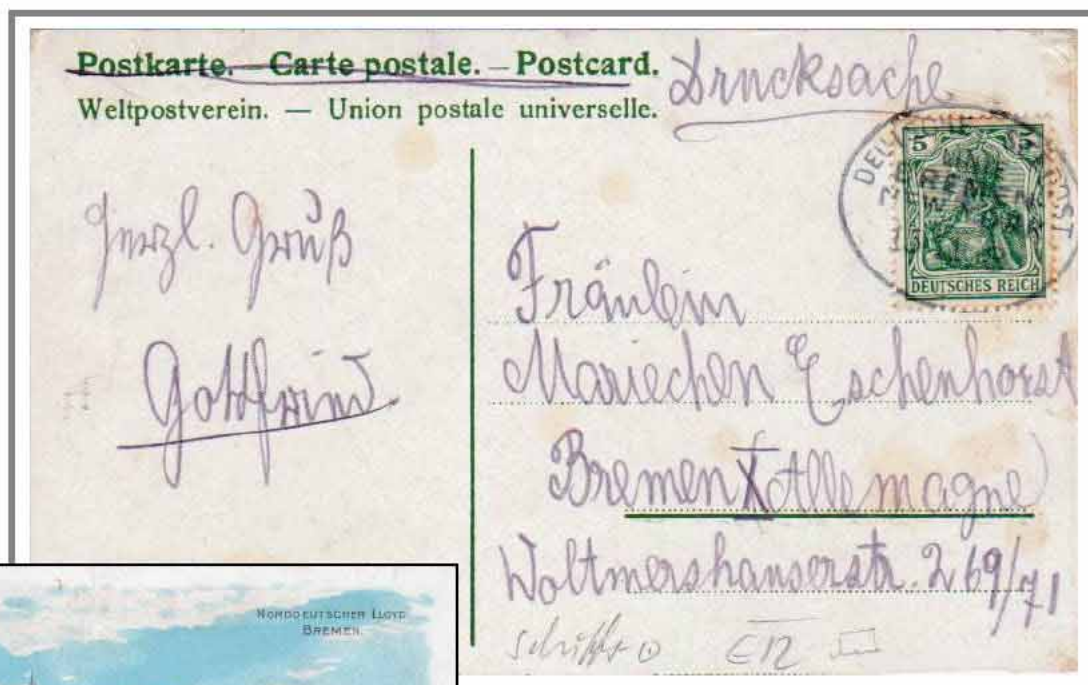 Postkarte. — Carte postale. — Postcard.
Weltpostverein. — Union postale universelle.
Drucksache
5 5
DEUTSCHES REICH
BREMEN
Herzl. Gruß
Gottfried.
Fräulein
Mariechen Eschenhorst
Bremen X (Allemagne)
Woltmershauserstr. 269/71
Schiffs
NORDDEUTSCHER LLOYD
BREMEN.